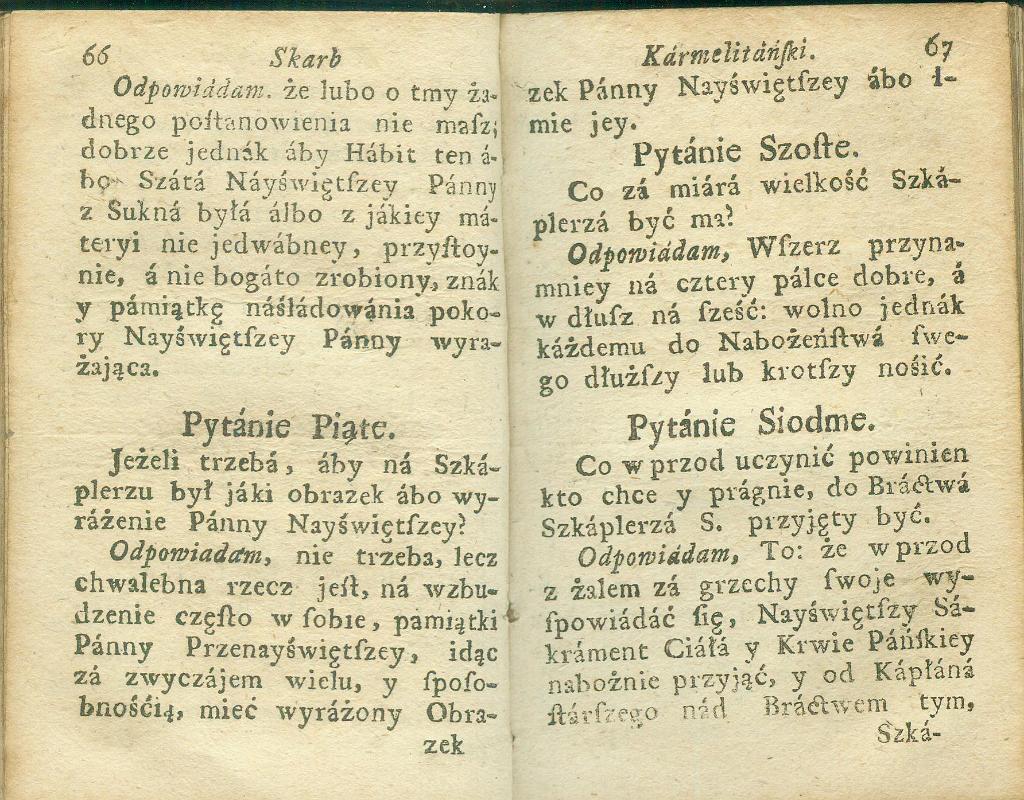 66 Skarb
Odpowiádam. że lubo o tmy ża-
dnego poſtanowienia nie maſz;
dobrze jednák áby Hábit ten á-
bo Szátá Náyświętſzey Pánny
z Sukná byłá álbo z jákiey má-
teryi nie jedwábney, przyſtoy-
nie, á nie bogáto zrobiony, znák
y pámiątkę náśłádowánia poko-
ry Nayświętſzey Pánny wyra-
żająca.
Pytánie Piąte.
Jeżeli trzebá, áby ná Szká-
plerzu był jáki obrazek ábo wy-
ráżenie Pánny Nayświętſzey?
Odpowiadam, nie trzeba, lecz
chwalebna rzecz jeſt, ná wzbu-
dzenie częſto w ſobie, pamiątki
Pánny Przenayświętſzey, idąc
zá zwyczájem wielu, y ſpoſo-
bnośćią, mieć wyráżony Obra-
zek
Kármelitáńſki. 67
zek Pánny Nayświętſzey ábo I-
mie jey.
Pytánie Szoſte.
Co zá miárá wielkość Szká-
plerzá być ma?
Odpowiádam, Wſzerz przyna-
mniey ná cztery pálce dobre, á
w dłuſz ná ſześć: wolno jednák
káżdemu do Nabożeńſtwá ſwe-
go dłużſzy lub krotſzy nośić.
Pytánie Siodme.
Co w przod uczynić powinien
kto chce y prágnie, do Bráctwá
Szkáplerzá S. przyjęty być.
Odpowiádam, To: że w przod
z żalem zá grzechy ſwoje wy-
ſpowiádáć ſię, Nayświętſzy Sá-
kráment Ciáłá y Krwie Páńſkiey
nabożnie przyjąć, y od Kápłáná
ſtárſzego nád Bráctwem tym,
Szká-